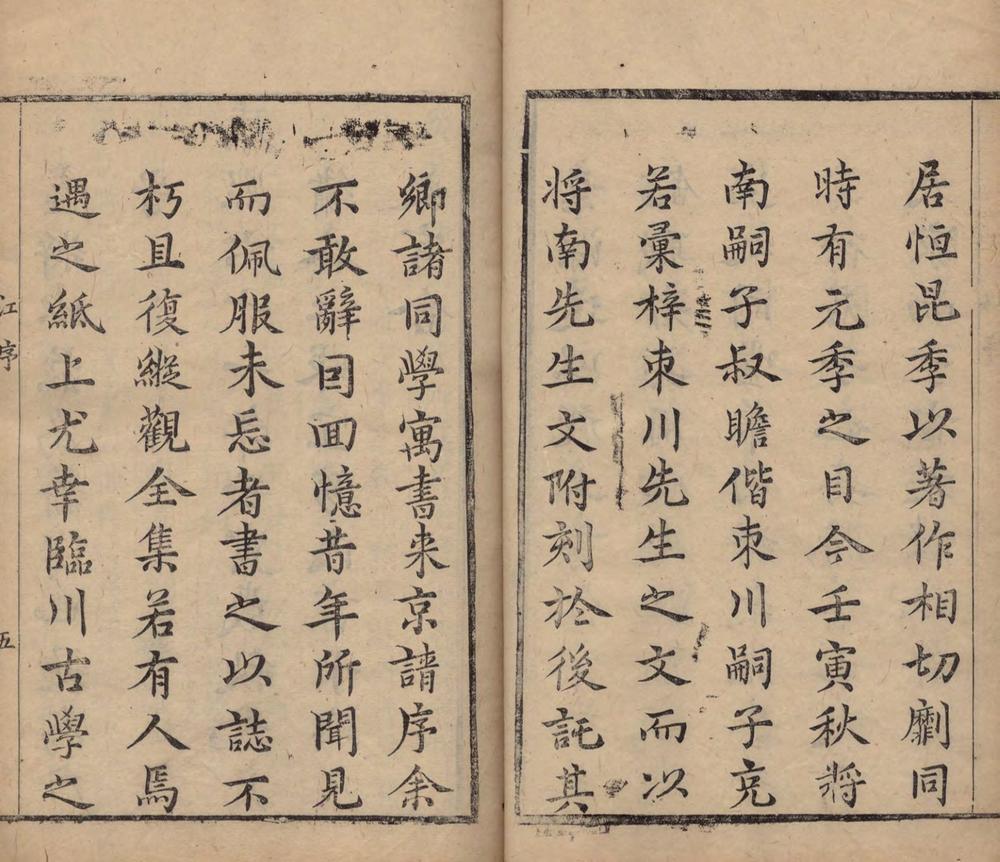 居恒昆季以著作相切劘同
時有元季之目今壬寅秋將
南嗣子叔瞻偕東川嗣子克
若彙梓東川先生之文而以
将南先生文附刻於後託其
卿諸同學寓書来京請序余
不敢辭因回憶昔年所聞見
而佩服未忘者書之以誌不
朽且復縱觀全集若有人焉
遇之紙上尤幸臨川古學之
江序
五